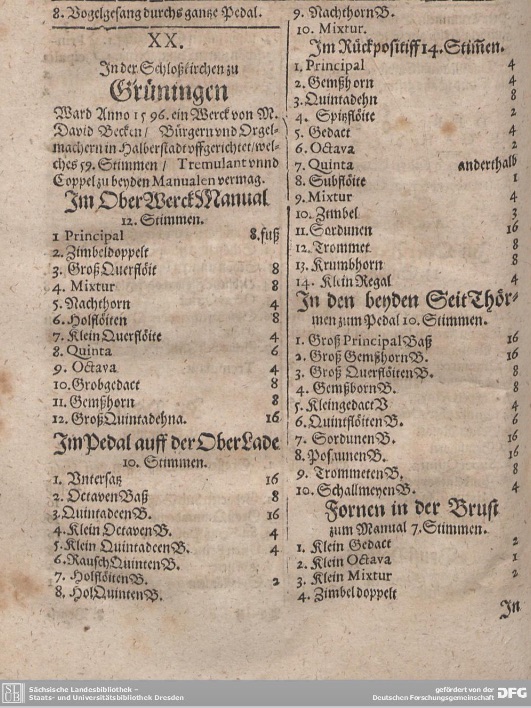 8. Vogelgesang durchs gantze Pedal.
XX.
In der Schloßkirchen zu
Grüningen
Ward Anno 1596. ein Werck von M.
David Becken / Bürgern vnd Orgel-
machern in Halberstadt vffgerichtet / wel-
ches 59. Stimmen / Tremulant vnnd
Coppel zu beyden Manualen vermag.
Im OberWerck Manual
12. Stimmen.
1 Principal 8. fuß
2. Zimbeldoppelt
3. Groß Querflöit 8
4. Mixtur 8
5. Nachthorn 4
6. Holflöiten 8
7. Klein Querflöite 4
8. Quinta 6
9. Octava 4
10. Grobgedact 8
11. Gemßhorn 8
12. Groß Quintadehna. 16
Im Pedal auff der Ober Lade
10. Stimmen.
1. Vntersatz 16
2. Octaven Baß 8
3. Quintadeen B. 16
4. Klein Octaven B. 4
5. Klein Quintadeen B. 4
6. Rausch Quinten B.
7. Holflöiten B. 2
8. HolQuinten B.
9. Nachthorn B. 4
10. Mixtur.
Im Rückpositiff 14. Stim̄en.
1. Principal 4
2. Gemßhorn 4
3. Quintadehn 8
4. Spitzflöite 2
5. Gedact 4
6. Octava 2
7. Quinta anderthalb
8. Subflöite 1
9. Mixtur 4
10. Zimbel 3
11. Sordunen 16
12. Trommet 8
13. Krumbhorn 8
14. Klein Regal 4
In den beyden Seit Thör-
men zum Pedal 10. Stimmen.
1. Groß Principal Baß 16
2. Groß Gemßhorn B. 16
3. Groß Querflöiten B. 8
4. Gemßhorn B. 8
5. Kleingedact B 4
6. Quintflöiten B. 6
7. Sordunen B. 16
8. Posaunen B. 16
9. Trommeten B. 8
10. Schallmeyen B. 4
Fornen in der Brust
zum Manual 7. Stimmen.
1. Klein Gedact 2
2. Klein Octava 1
3. Klein Mixtur 2
4. Zimbel doppelt
In
SLUB
Sächsische Landesbibliothek –
Staats- und Universitätsbibliothek Dresden
gefördert von der
Deutschen Forschungsgemeinschaft
DFG